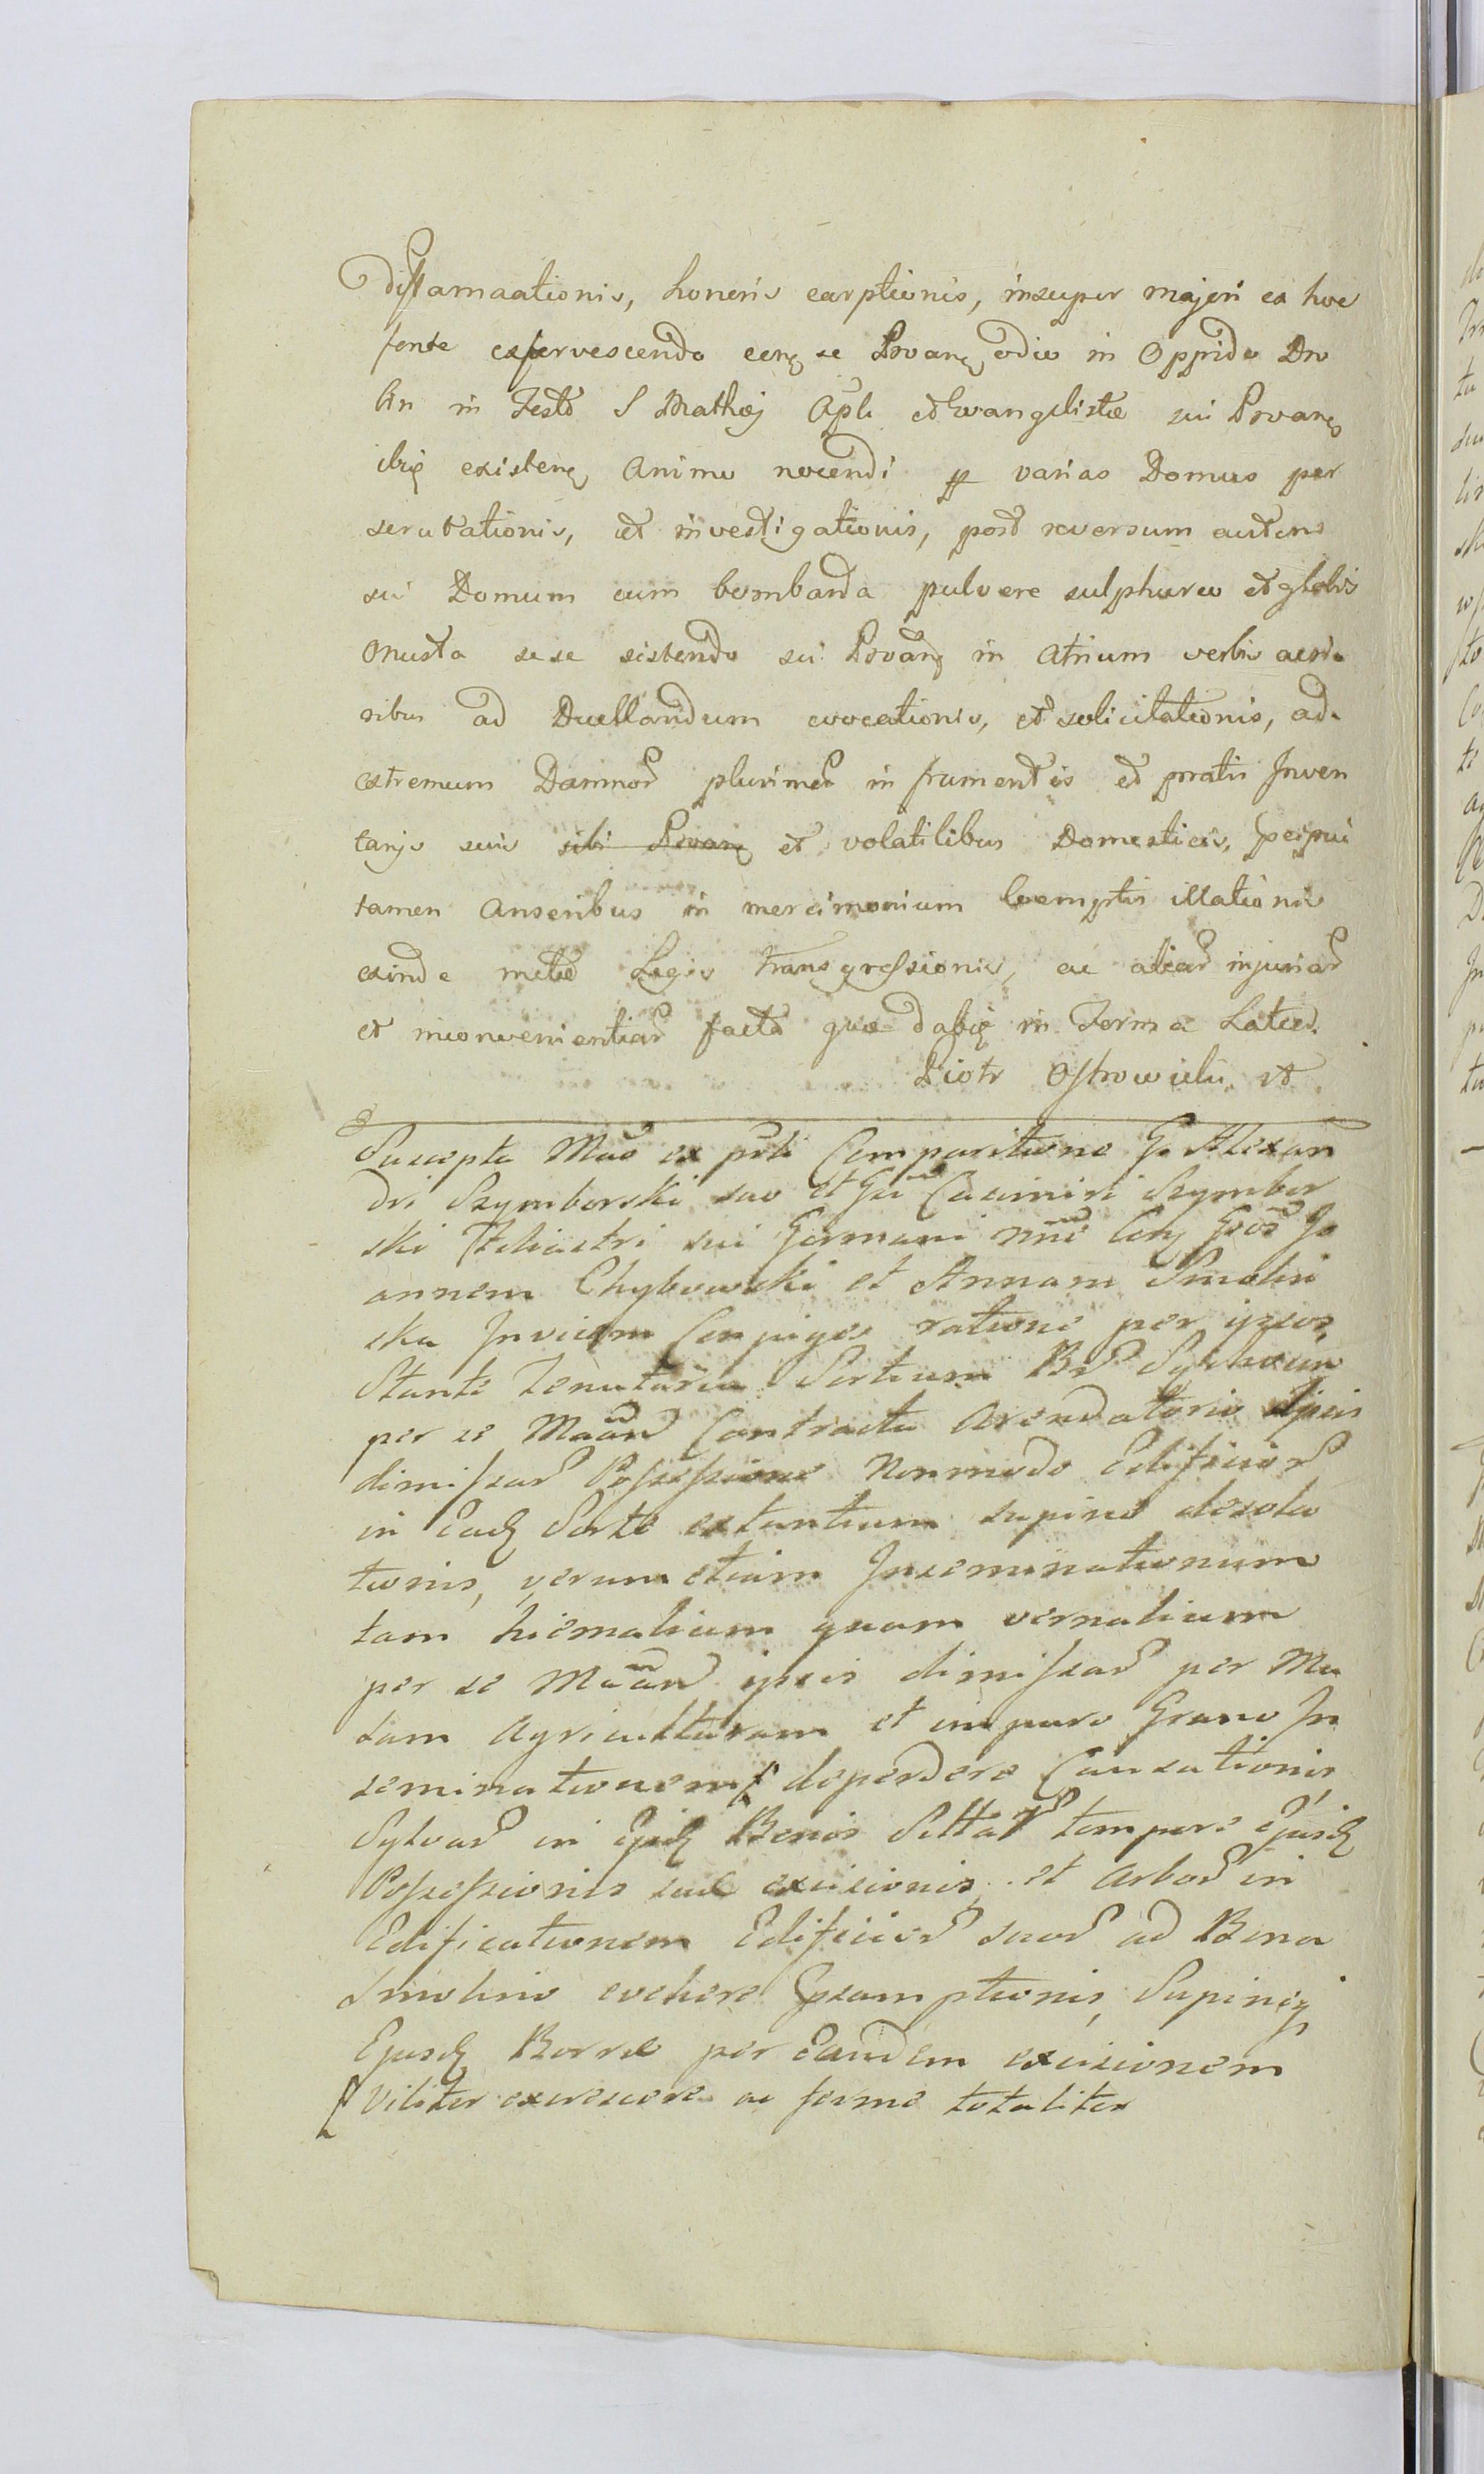 diffamaationis, honoris carptionis, insuper majori ex hoc
fonte exfervescendo ergą se Provang odio in Oppido Dro
hin in Festo S Mathæj Apli et Evangelistæ sui Provang
ibiq existeng Animo nocendi per varias Domus per
scrutationis, et investigationis, post reversum autem
sui Domum cum bombarda pulvere sulphureo et globis
onusta sese sistendo sui Provang in Atrium verbis acrio
ribus ad Duellandum evocationis, et solicitationis, ad
extremum Damnor plurimor in frumentis et pratis Inven
tarijs suis sibi Provang et volatilibus Domesticis,
tamen Anseribus in mercimonium coemptis illationis
exinde Legis transgressionis, ac aliar injuriar
et inconvenientiar facta quæ dabit in Forma Latiori
Piotr Ostrowicki
Suscepta Mas ex prti Comparitione G. Alexan
dri Szymborski suo et Gsi Casimiri Szymbor
ski Fratris sui Germani nne Cong Gsos Jo
annem Chybowski et Annam Smolin
ska Invicem Conjuges ratione per ipsos
Stante Tenutaria Sortium Br
per se Maand Contractu Arendatorio Ipsis
dimissar Possessione Nonmodo Edificior
in Eadq Sorte extantium supinæ desola
tionis, verum etiam Inseminationum
tam hiemalium quam vernalium
per se Maand ipsis dimissar per Ma
lam Agriculturam et impuro Grano In
seminationem deperdere Causationis
Sylvar in Ejusdq Benis tempore Ejusdq
Possessionis suæ excisionis et Arbor in
Edificationem Edificior suor ad Bona
Smolino evehere Præsumptionis, Supineq
Ejusdq Borræ per Eandem excisionem
Viliter excrescere ac ferme totaliter